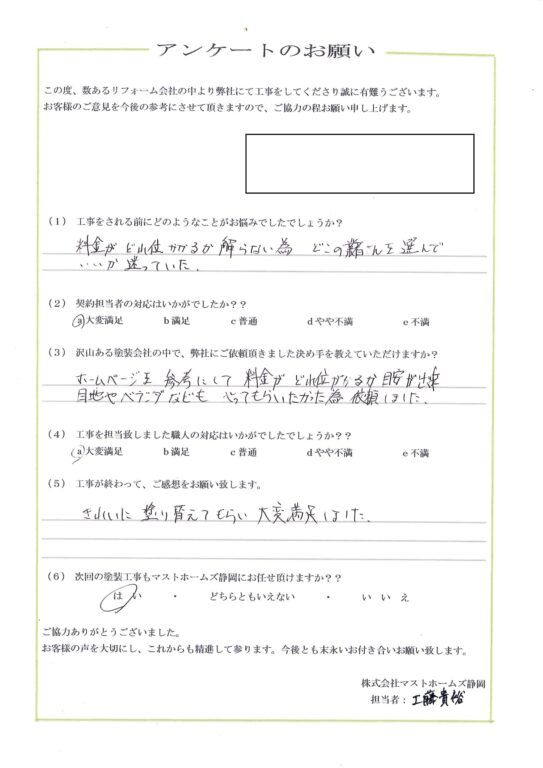 アンケートのお願い
この度、数あるリフォーム会社の中より弊社にて工事をしてくださり誠に有難うございます。
お客様のご意見を今後の参考にさせて頂きますので、ご協力の程お願い申し上げます。
(1) 工事をされる前にどのようなことがお悩みでしたでしょうか?
料金がどれ位かかるか解らない為 どこの業者さんを選んで
いいか迷っていた。
(2) 契約担当者の対応はいかがでしたか??
a大変満足 b満足 c普通 dやや不満 e不満
(3) 沢山ある塗装会社の中で、弊社にご依頼頂きました決め手を教えていただけますか?
ホームページを参考にして 料金がどれ位かかるか目安が出来
目地やベランダなども やってもらいたかった為 依頼しました。
(4) 工事を担当致しました職人の対応はいかがでしたでしょうか??
a大変満足 b満足 c普通 dやや不満 e不満
(5) 工事が終わって、ご感想をお願い致します。
きれいに 塗り替えてもらい 大変満足しました。
(6) 次回の塗装工事もマストホームズ静岡にお任せ頂けますか??
はい ・ どちらともいえない ・ いいえ
ご協力ありがとうございました。
お客様の声を大切にし、これからも精進して参ります。今後とも末永いお付き合いお願い致します。
株式会社マストホームズ静岡
担当者:工藤貴裕